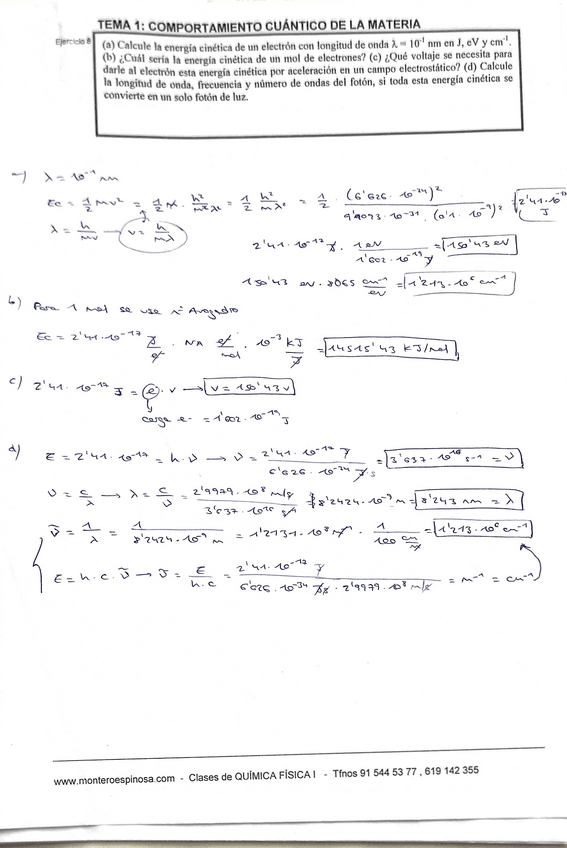 TEMA 1: COMPORTAMIENTO CUÁNTICO DE LA MATERIA
Ejercicio 8
(a) Calcule la energía cinética de un electrón con longitud de onda λ = 10⁻¹ nm en J, eV y cm⁻¹.
(b) ¿Cuál sería la energía cinética de un mol de electrones? (c) ¿Qué voltaje se necesita para
darle al electrón esta energía cinética por aceleración en un campo electrostático? (d) Calcule
la longitud de onda, frecuencia y número de ondas del fotón, si toda esta energía cinética se
convierte en un solo fotón de luz.
a) λ = 10⁻¹ nm
Ec = 1/2 mv² = 1/2 m · h²/m²λ² = 1/2 h²/mλ² = 1/2 · (6'626 · 10⁻³⁴)² / 9'1093 · 10⁻³¹ · (0'1 · 10⁻⁹)² = 2'41 · 10⁻¹⁷ J
λ = h/mv → v = h/mλ
2'41 · 10⁻¹⁷ J · 1 eV / 1'602 · 10⁻¹⁹ J = 150'43 eV
150'43 eV · 8065 cm⁻¹/eV = 1'213 · 10⁶ cm⁻¹
b) Para 1 mol se use nº Avogadro
Ec = 2'41 · 10⁻¹⁷ J/e⁻ · NA e⁻/mol · 10⁻³ kJ/J = 14515'43 kJ/mol
c) 2'41 · 10⁻¹⁷ J = e · V → V = 150'43 V
carga e⁻ = 1'602 · 10⁻¹⁹ J
d) E = 2'41 · 10⁻¹⁷ = h · ν → ν = 2'41 · 10⁻¹⁷ J / 6'626 · 10⁻³⁴ J·s = 3'637 · 10¹⁶ s⁻¹ = ν
ν = c/λ → λ = c/ν = 2'9979 · 10⁸ m/s / 3'637 · 10¹⁶ s⁻¹ = 8'2424 · 10⁻⁹ m = 8'243 nm = λ
ν̃ = 1/λ = 1 / 8'2424 · 10⁻⁹ m = 1'2131 · 10⁸ m⁻¹ · 1/100 cm/m = 1'213 · 10⁶ cm⁻¹
E = h · c · ν̃ → ν̃ = E/h·c = 2'41 · 10⁻¹⁷ J / 6'626 · 10⁻³⁴ J·s · 2'9979 · 10⁸ m/s = m⁻¹ = cm⁻¹
www.monteroespinosa.com - Clases de QUÍMICA FÍSICA I - Tfnos 91 544 53 77 , 619 142 355